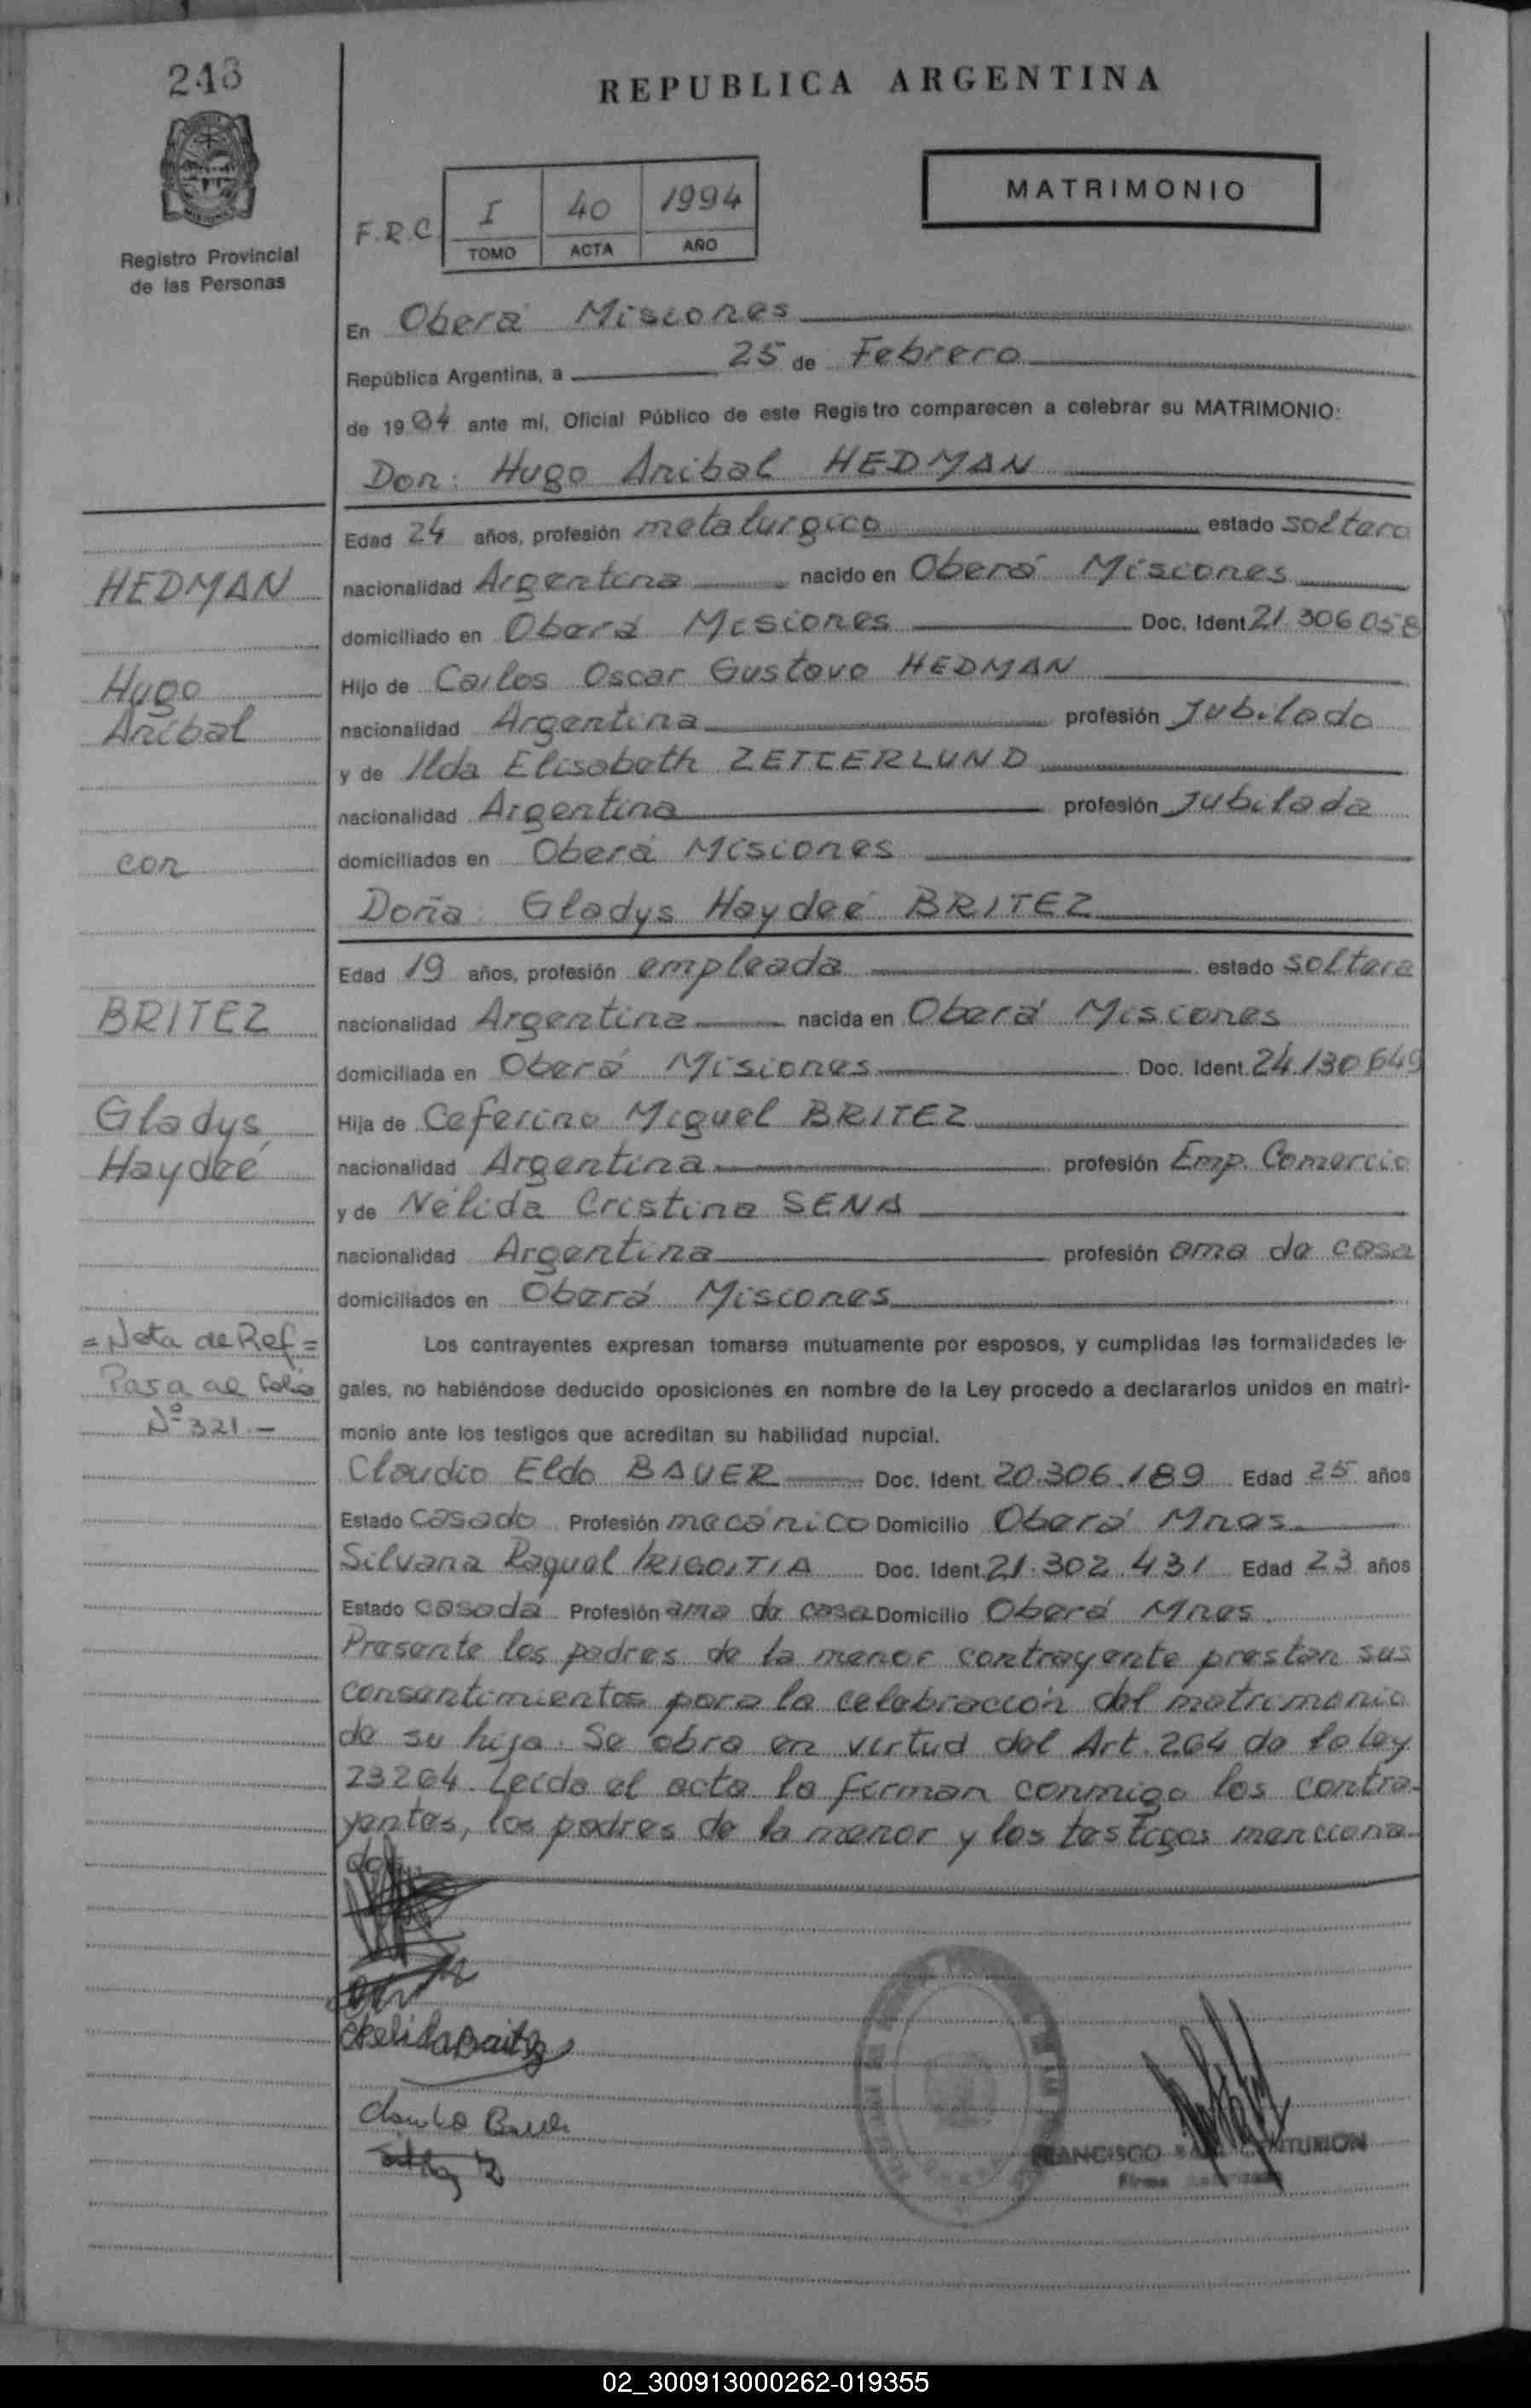 243
REPUBLICA ARGENTINA
Registro Provincial
de las Personas
F.R.C.
I 40 1994
TOMO ACTA AÑO
MATRIMONIO
En Oberá Misiones
República Argentina, a 25 de Febrero
de 1994 ante mí, Oficial Público de este Registro comparecen a celebrar su MATRIMONIO:
Don: Hugo Anibal HEDMAN
Edad 24 años, profesión metalurgico estado soltero
nacionalidad Argentina nacido en Oberá Misiones
domiciliado en Oberá Misiones Doc. Ident. 21.306.058
Hijo de Carlos Oscar Gustavo HEDMAN
nacionalidad Argentina profesión Jubilado
y de Ilda Elisabeth ZETTERLUND
nacionalidad Argentina profesión Jubilada
domiciliados en Oberá Misiones
Doña: Gladys Haydeé BRITEZ
Edad 19 años, profesión empleada estado soltera
nacionalidad Argentina nacida en Oberá Misiones
domiciliada en Oberá Misiones Doc. Ident. 24.130.649
Hija de Ceferino Miguel BRITEZ
nacionalidad Argentina profesión Emp. Comercio
y de Nélida Cristina SENA
nacionalidad Argentina profesión ama de casa
domiciliados en Oberá Misiones
HEDMAN
Hugo
Anibal
con
BRITEZ
Gladys
Haydeé
= Nota de Ref =
Pasa al folio
Nº 321.-
Los contrayentes expresan tomarse mutuamente por esposos, y cumplidas las formalidades le-
gales, no habiéndose deducido oposiciones en nombre de la Ley procedo a declararlos unidos en matri-
monio ante los testigos que acreditan su habilidad nupcial.
Claudio Eldo BAUER Doc. Ident. 20.306.189 Edad 25 años
Estado casado Profesión mecánico Domicilio Oberá Mnes.
Silvana Raquel IRIGOITIA Doc. Ident. 21.302.431 Edad 23 años
Estado casada Profesión ama de casa Domicilio Oberá Mnes.
Presente los padres de la menor contrayente prestan sus
consentimientos para la celebración del matrimonio
de su hija. Se obra en virtud del Art. 264 de la ley
23264. Leída el acta la firman conmigo los contra-
yentes, los padres de la menor y los testigos menciona-
dos
FRANCISCO CENTURION
02_300913000262-019355